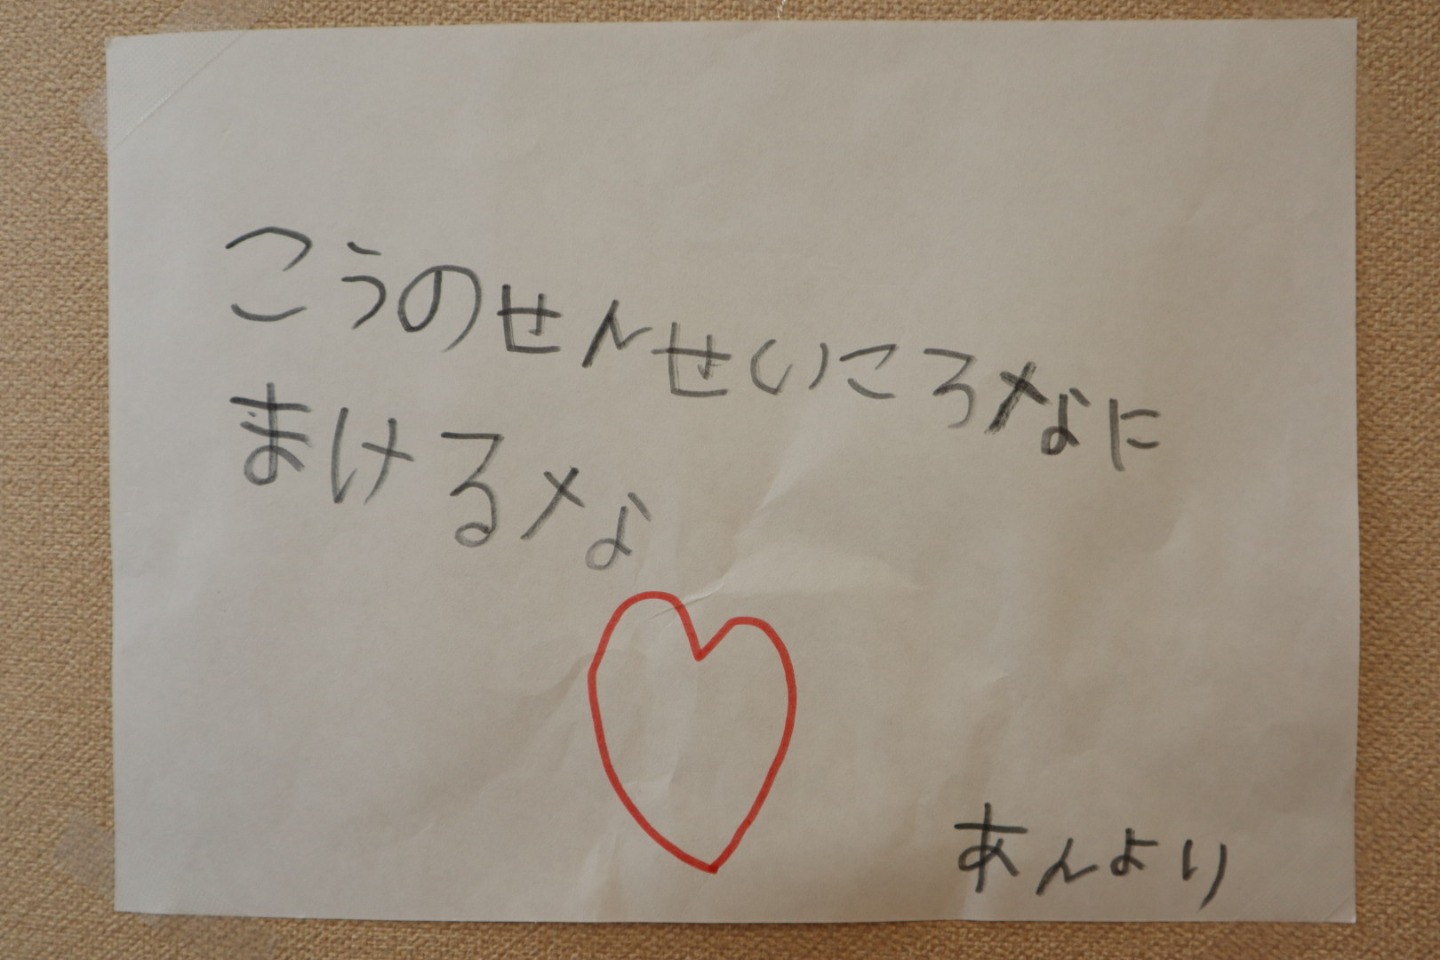 こうのせんせいころなに
まけるな
あんより